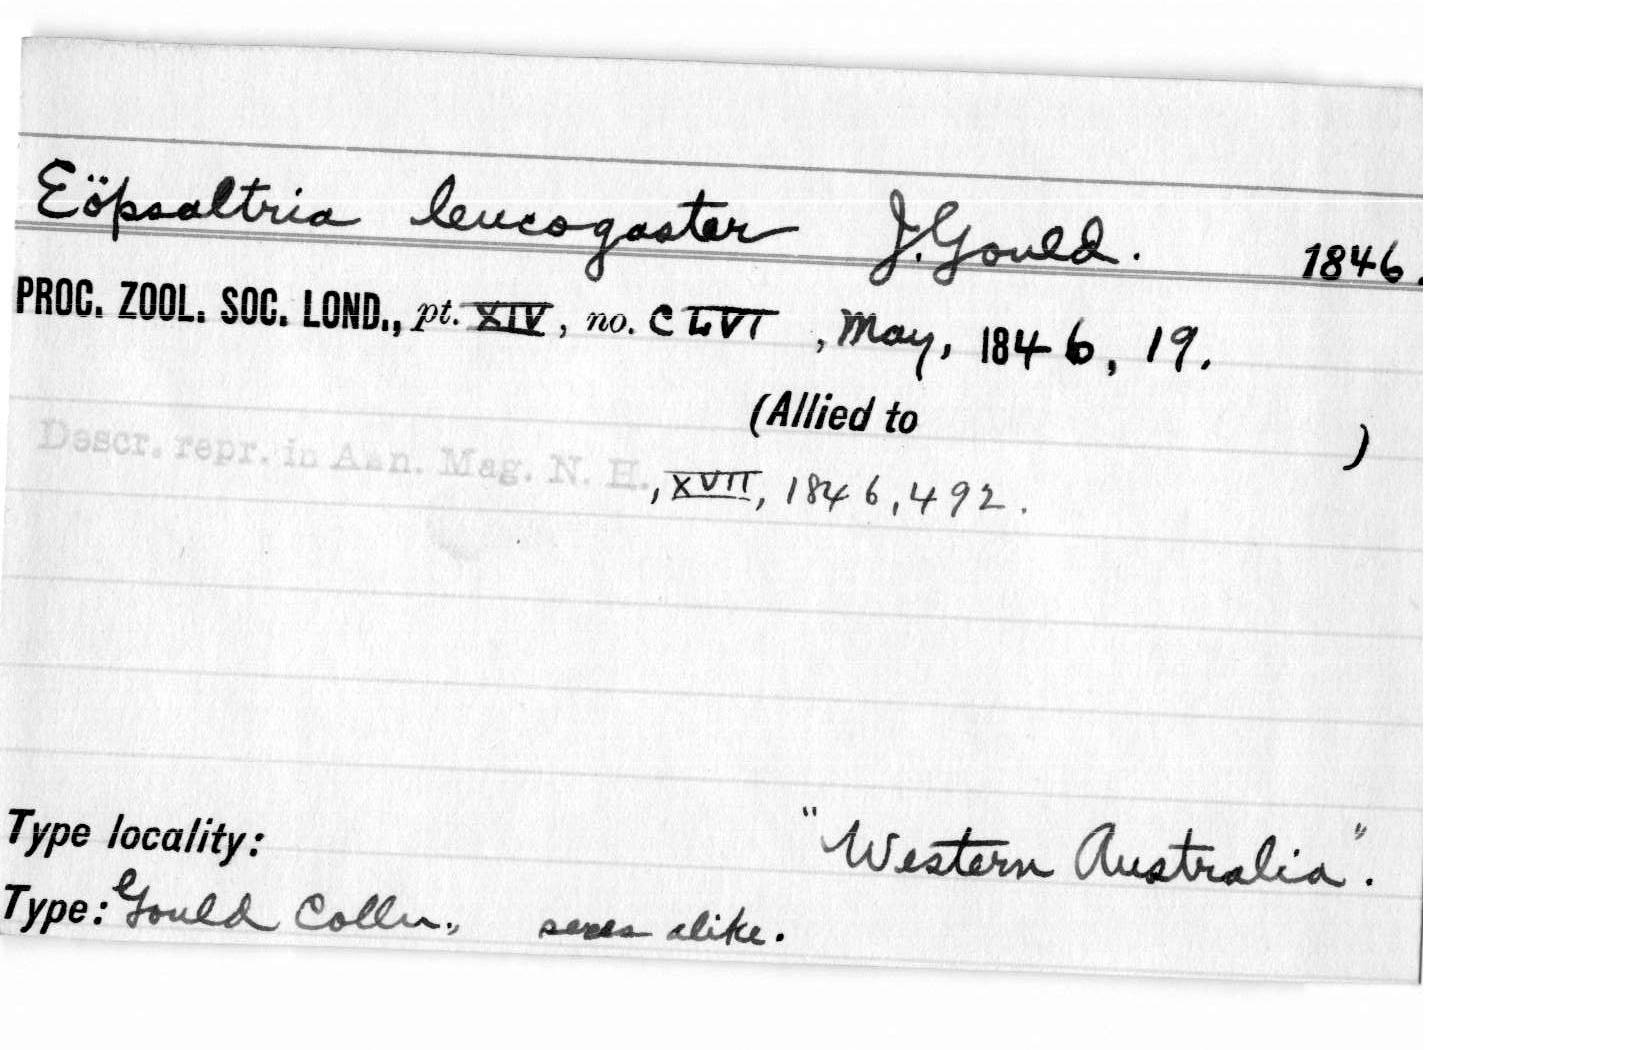 Eöpsaltria leucogaster J. Gould. 1846.
PROC. ZOOL. SOC. LOND., pt. XIV, no. CLVI, May, 1846, 19.
(Allied to )
Descr. repr. in Ann. Mag. N. H., XVII, 1846, 492.
Type locality: "Western Australia".
Type: Gould Colln., sexes alike.